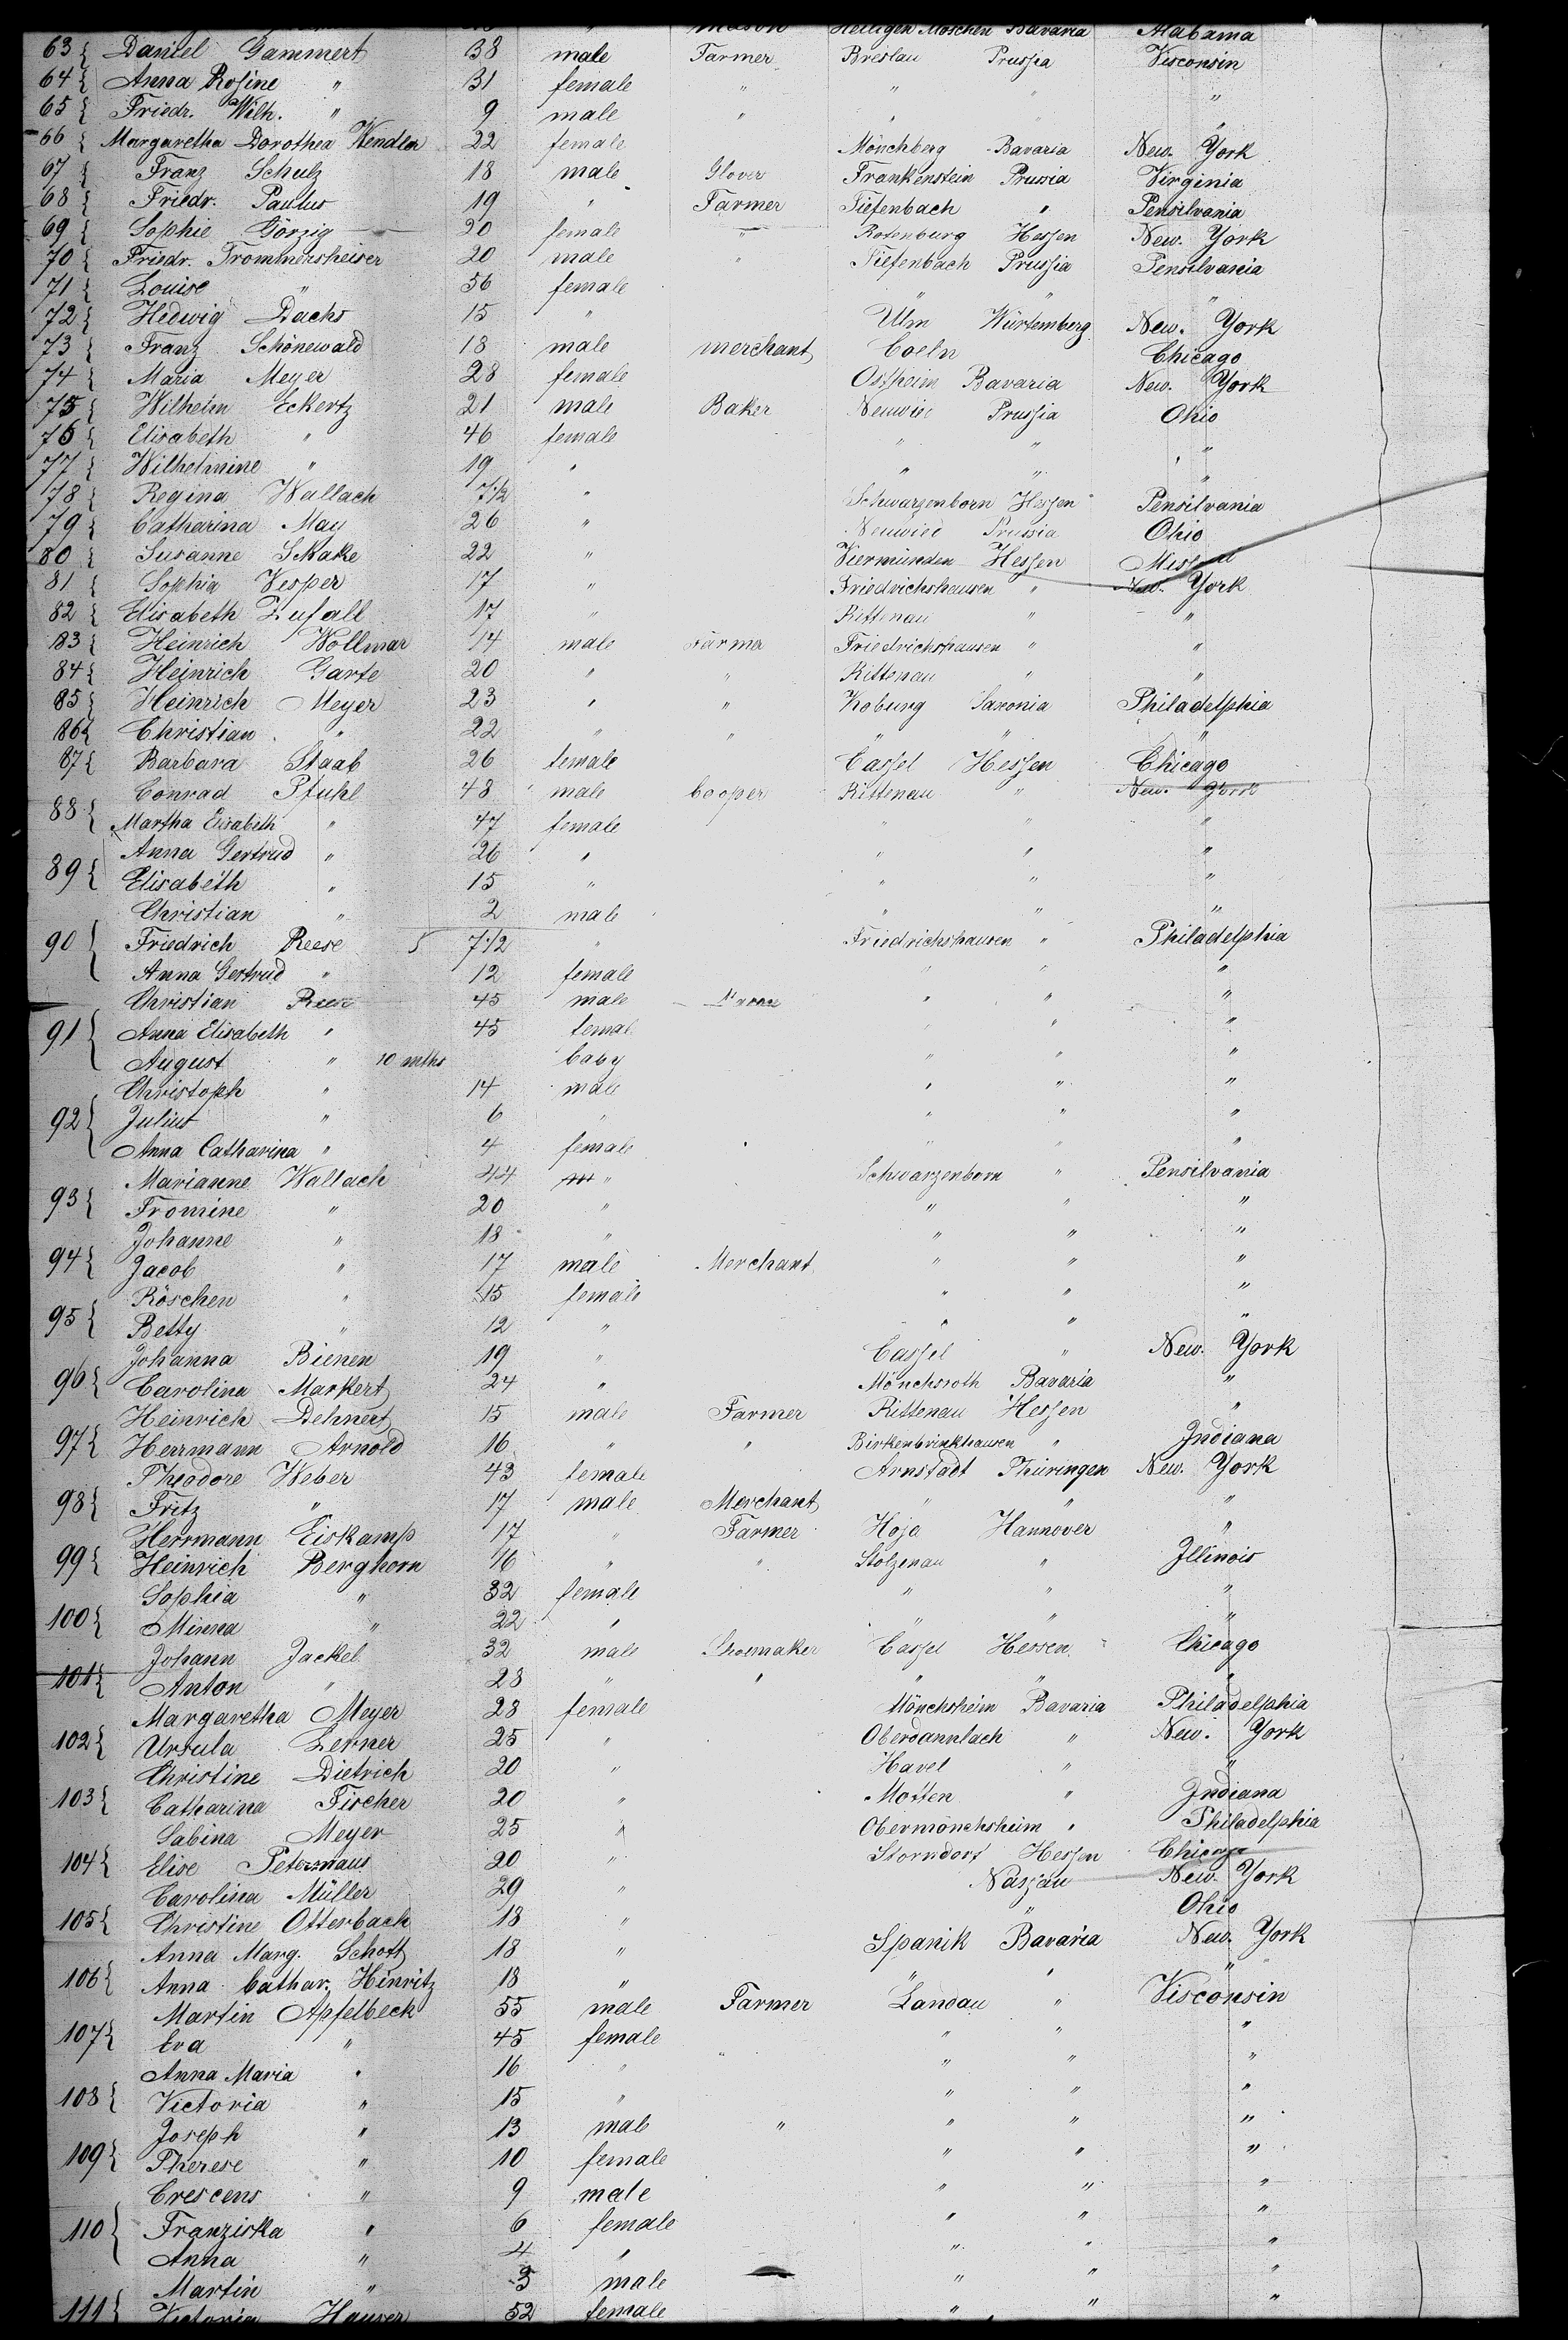 mason Heiligen Moschen Bavaria Alabama
63 { Daniel Gammert 38 male Farmer Breslau Prussia Visconsin
64 { Anna Rosine " 31 female " " " "
65 { Friedr. Wilh. " 9 male " " " "
66 { Margaretha Dorothea Wendler 22 female Mönchberg Bavaria New. York
67 { Franz Schulz 18 male Glover Frankenstein Prussia Virginia
68 { Friedr. Paulus 19 " Farmer Tiefenbach " Pensilvania
69 { Sophie Görzig 20 female " Rotenburg Hessen New. York
70 { Friedr. Trommersheiser 20 male " Tiefenbach Prussia Pensilvania
71 { Louise " 56 female " " "
72 { Hedwig Dachs 15 " Ulm Würtemberg New. York
73 { Franz Schönewald 18 male merchant Coeln Chicago
74 { Maria Meyer 28 female Ostheim Bavaria New. York
75 { Wilhelm Eckertz 21 male Baker Neuwied Prussia Ohio
76 { Elisabeth " 46 female " " "
77 { Wilhelmine " 19 " " " "
78 { Regina Wallach 7½ " Schwarzenborn Hessen Pensilvania
79 { Catharina May 26 " Neuwied Prussia Ohio
80 { Susanne Skake 22 " Viermünden Hessen
81 { Sophia Vesper 17 " Friedrichshausen " New. York
82 { Elisabeth Zufall 17 " Rittenau " "
83 { Heinrich Wollmar 14 male Farmer Friedrichshausen " "
84 { Heinrich Garte 20 " " Rittenau " "
85 { Heinrich Meyer 23 " " Koburg Saxonia Philadelphia
86 { Christian " 22 " " " " "
87 { Barbara Staab 26 female Cassel Hessen Chicago
Conrad Pfuhl 48 male Cooper Rittenau " New. York
88 { Martha Elisabeth " 47 female " " "
Anna Gertrud " 26 " " " "
89 { Elisabeth " 15 " " " "
Christian " 2 male " " "
90 { Friedrich Reese 5 7½ " Friedrichshausen " Philadelphia
Anna Gertrud " 12 female " " "
Christian Reese 45 male " " "
91 { Anna Elisabeth " 45 femal " " "
August " 10 mths baby " " "
Christoph " 14 male " " "
92 { Julius " 6 " " " "
Anna Catharina " 4 female " " "
Marianne Wallach 44 " Schwarzenborn " Pensilvania
93 { Fromine " 20 " " " "
Johanne " 18 " " " "
94 { Jacob " 17 male Merchant " " "
Röschen " 15 female " " "
95 { Betty " 12 " " " "
Johanna Bienen 19 " Cassel " New. York
96 { Carolina Markert 24 " Mönchsroth Bavaria "
Heinrich Dehnert 15 male Farmer Rittenau Hessen "
97 { Herrmann Arnold 16 " " Birkenbrinkhausen " Indiana
Theodore Weber 43 female Arnstadt Thüringen New. York
98 { Fritz " 17 male Merchant " " "
Herrmann Eiskamp 17 " Farmer Hoja Hannover "
99 { Heinrich Berghorn 16 " " Stolzenau " Illinois
Sophia " 32 female " " "
100 { Minna " 22 " " " "
Johann Jackel 32 male Shoemaker Cassel Hessen Chicago
101 { Anton " 28 " " " " "
Margaretha Meyer 28 female Mönchsheim Bavaria Philadelphia
102 { Ursula Lerner 25 " Oberdannlach " New. York
Christine Dietrich 20 " Havel " "
103 { Catharina Fischer 20 " Motten " Indiana
Sabina Meyer 25 " Obermönchsheim " Philadelphia
104 { Elise Petermaus 20 " Storndorf Hessen Chicago
Carolina Müller 29 " Nassau New. York
105 { Christine Otterbach 18 " " Ohio
Anna Marg. Schott 18 " Spanik Bavaria New. York
106 { Anna Cathar. Hinritz 18 " " " "
Martin Apfelbeck 55 male Farmer Landau " Visconsin
107 { Eva " 45 female " " " "
Anna Maria " 16 " " " "
108 { Victoria " 15 " " " "
Joseph " 13 male " " " "
109 { Therese " 10 female " " "
Crescens " 9 male " " "
110 { Franziska " 6 female " " "
Anna " 4 " " " "
Martin " 3 male " " "
111 { Victoria Hauser 52 female " " "